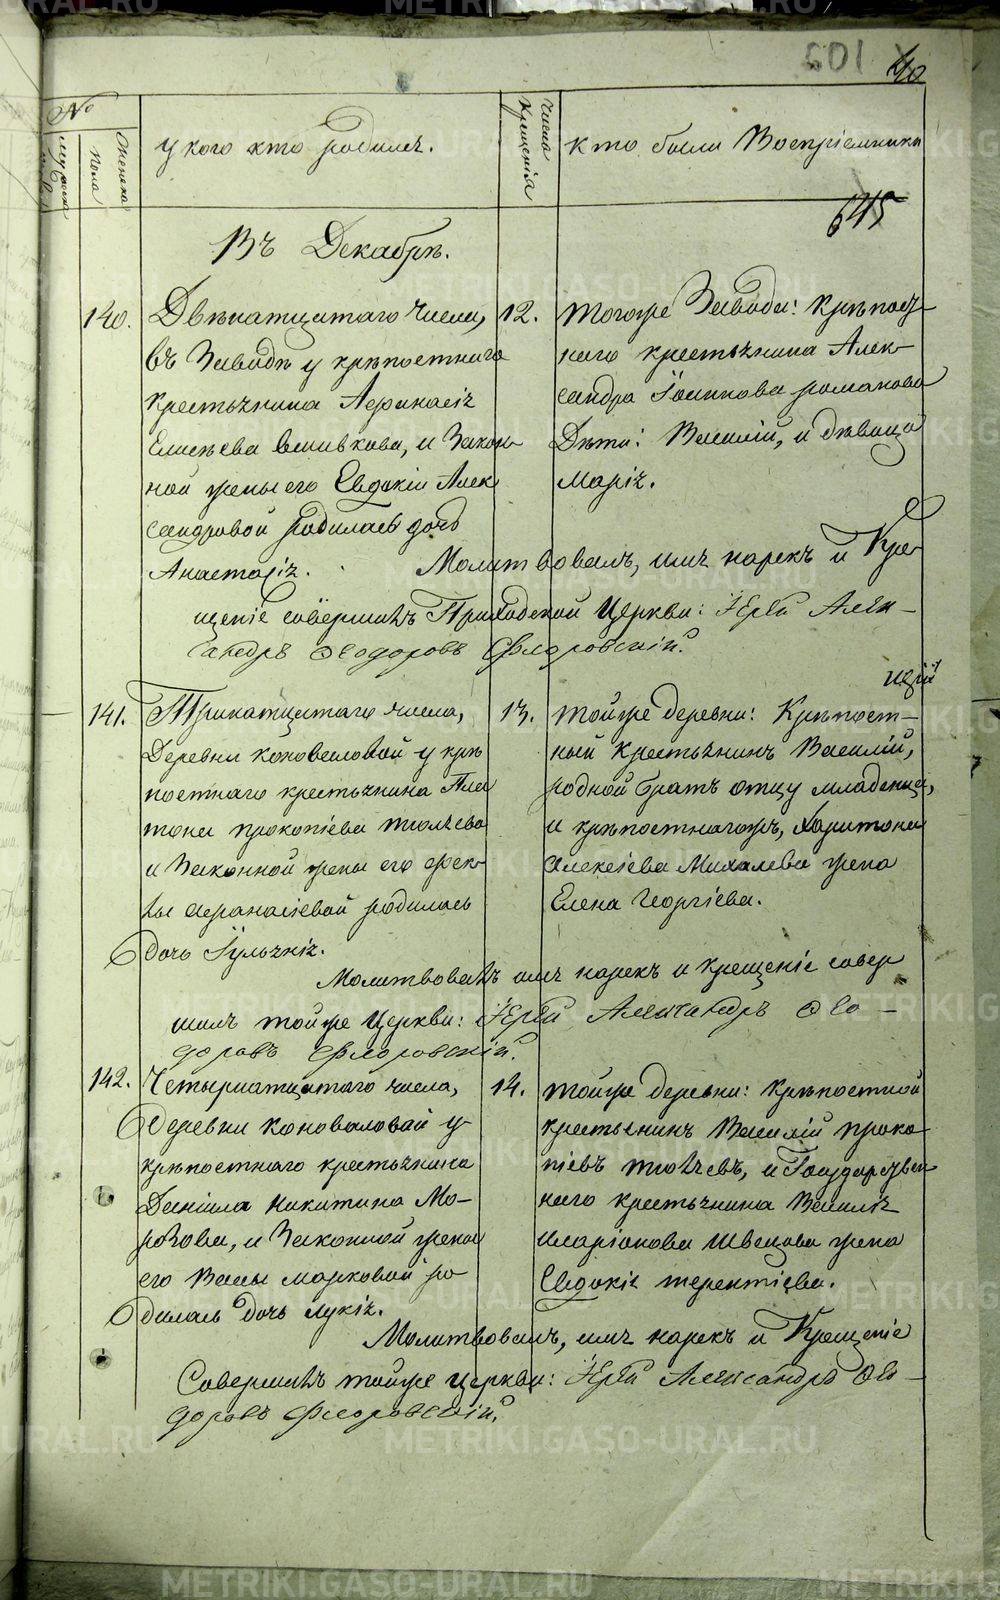 601
40
№
Мужеска
пола
Женска
у кого кто родился.
Числа
Крещенія
кто были Воспріемники
645
Въ Декабрѣ.
140.
Двѣнатцатаго числа,
въ Заводѣ у крѣпостнаго
крестьянина Афанасія
Елисѣева Вшивкова, и Закон-
ной жены его Евдокіи Алек
сандровой родилась дочь
Анастасія.
12.
Тогоже Завода: Крѣпост-
наго крестьянина Алек-
сандра Іоаннова романова
Дѣти: Василій, и дѣвица
Марія.
Молитвовалъ, имя нарекъ и Кре-
щеніе совершилъ Приходской Церкви: Іерей Алек-
сандръ Ѳеодоровъ Флоровскій.
141.
Тринатцатаго числа,
Деревни Коноваловой у крѣ
постнаго крестьянина Пла
тона прокопіева
и Законной жены его Фек-
лы Афанасіевой родилась
дочь Іульянія.
13.
тойже деревни: Крѣпост-
ный крестьянинъ Василій,
родной братъ отцу младенца,
и крѣпостнагожъ, Харитона
Алексіева Михалева жена
Елена Георгіева.
Молитвовалъ имя нарекъ и крещеніе совер
шилъ тойже Церкви: Іерей Александръ Ѳео-
доровъ Флоровскій.
142.
Четырнатцатаго числа,
Деревни Коноваловой у
крѣпостнаго крестьянина
Даніила Никитина Мо-
розова, и Законной жены
его Вассы марковой ро
дилась дочь лукія.
14.
тойже деревни: Крѣпостной
крестьянинъ Василій проко
піевъ и Государствен
наго крестьянина Василія
иларіонова Швецова жена
Евдокія терентіева.
Молитвовалъ, имя нарекъ и Крещеніе
Совершилъ тойже церкви: Іерей Александръ Ѳео-
доровъ Флоровскій.
METRIKI.GASO-URAL.RU